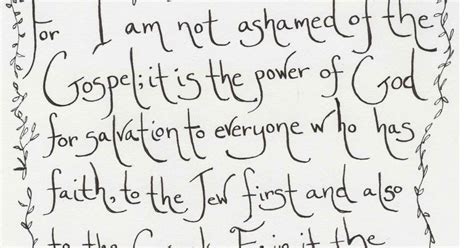 For I am not ashamed of the
Gospel; it is the power of God
for salvation to everyone who has
faith, to the Jew first and also
to the in it the